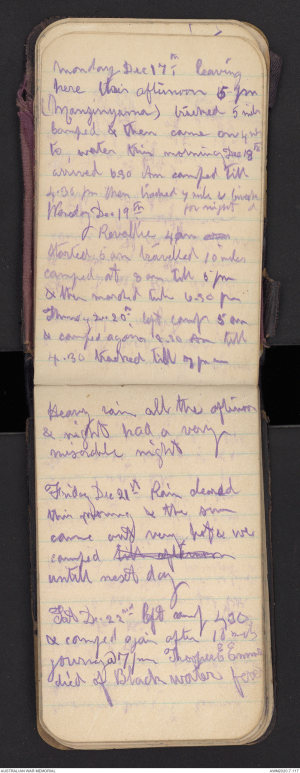 Monday Dec 17th leaving
here this afternoon 5 pm
(Manzinyama) treked 5 mls
camped & then came on 4 mls
to water this morning Dec 18th
arrived 6.30 Am camped till
4.30 pm then treked 4 mls &
for night
Wensday Dec 19th
Revallie 4 am
started 5 am travelled 10 miles
camped at 8 am till 5 pm
& then marched till 6.30 pm
Thursday Dec 20th left camp 5 am
& camped again 9.30 am till
4.30 treked till 7 pm
Heavy rain all the afternoon
& night had a very
miserable night
Friday Dec 21st Rain cleared
this morning & the sun
came out very hot & we
camped till afternoon
untill next day
Sat Dec 22nd left camp 4.30
& camped again after 10 mls
journey 7 pm Trooper E
died of Black water fever
AUSTRALIAN WAR MEMORIAL